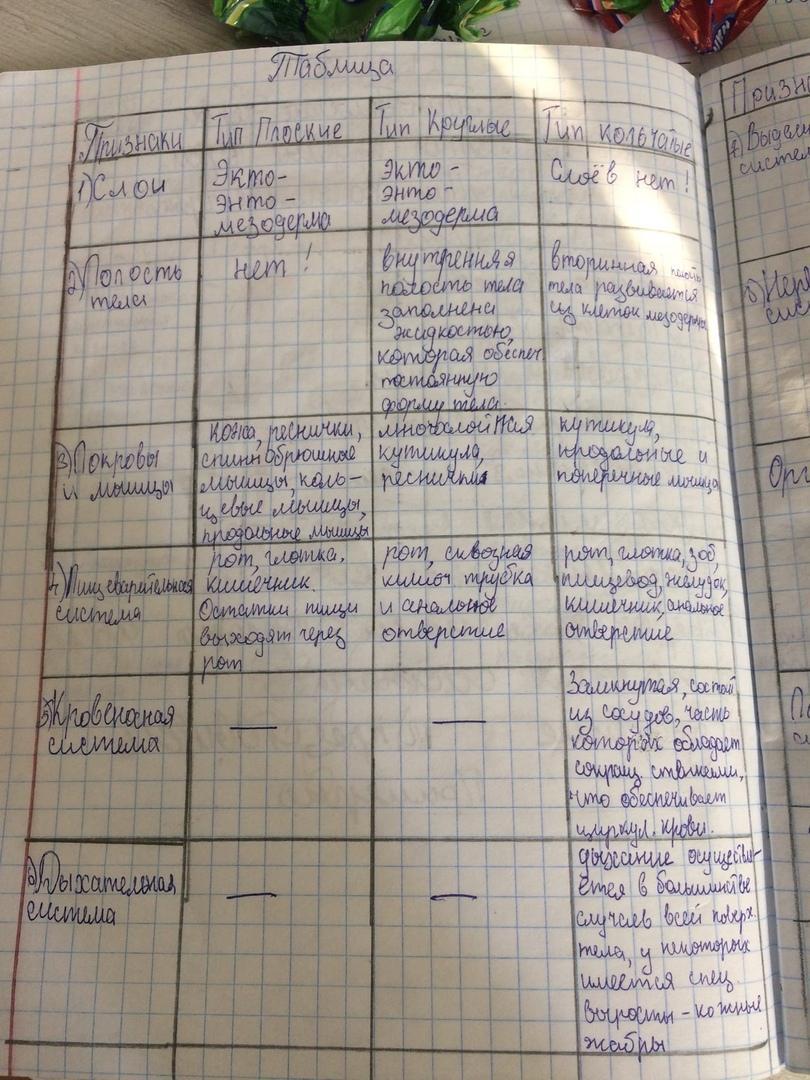 Таблица
Признаки
Тип Плоские
Тип Круглые
Тип кольчатые
1) Слои
Экто-
энто-
мезодерма
экто-
энто-
мезодерма
Слоёв нет!
2) Полость
тела
нет!
внутренняя
полость тела
заполнена
жидкостью,
которая обеспеч.
постоянную
форму тела.
вторинная полость
тела развивается
из клеток мезодермы
3) Покровы
и мышцы
кожа, реснички,
спиннобрюшные
мышцы, коль-
цевые мышцы,
продольные мышцы
многослойная
кутикула,
реснички
кутикула,
продольные и
поперечные мышцы
4) Пищеварительная
система
рот, глотка,
кишечник.
Остатки пищи
выходят через
рот
рот, сквозная
кишеч трубка
и анальное
отверстие
рот, глотка, зоб,
пищевод, желудок,
кишечник, анальное
отверстие
5) Кровеносная
система
—
—
Замкнутая, состоит
из сосудов, часть
которых обладает
сокращ. стенками,
что обеспечивает
циркул. крови.
6) Дыхательная
система
—
—
дыхание осуществл-
ется в большинстве
случаев всей поверх.
тела, у некоторых
имеется спец.
выросты - кожные
жабры
Призна
7) Выдел
систем
8) Нерв
сист
Орг